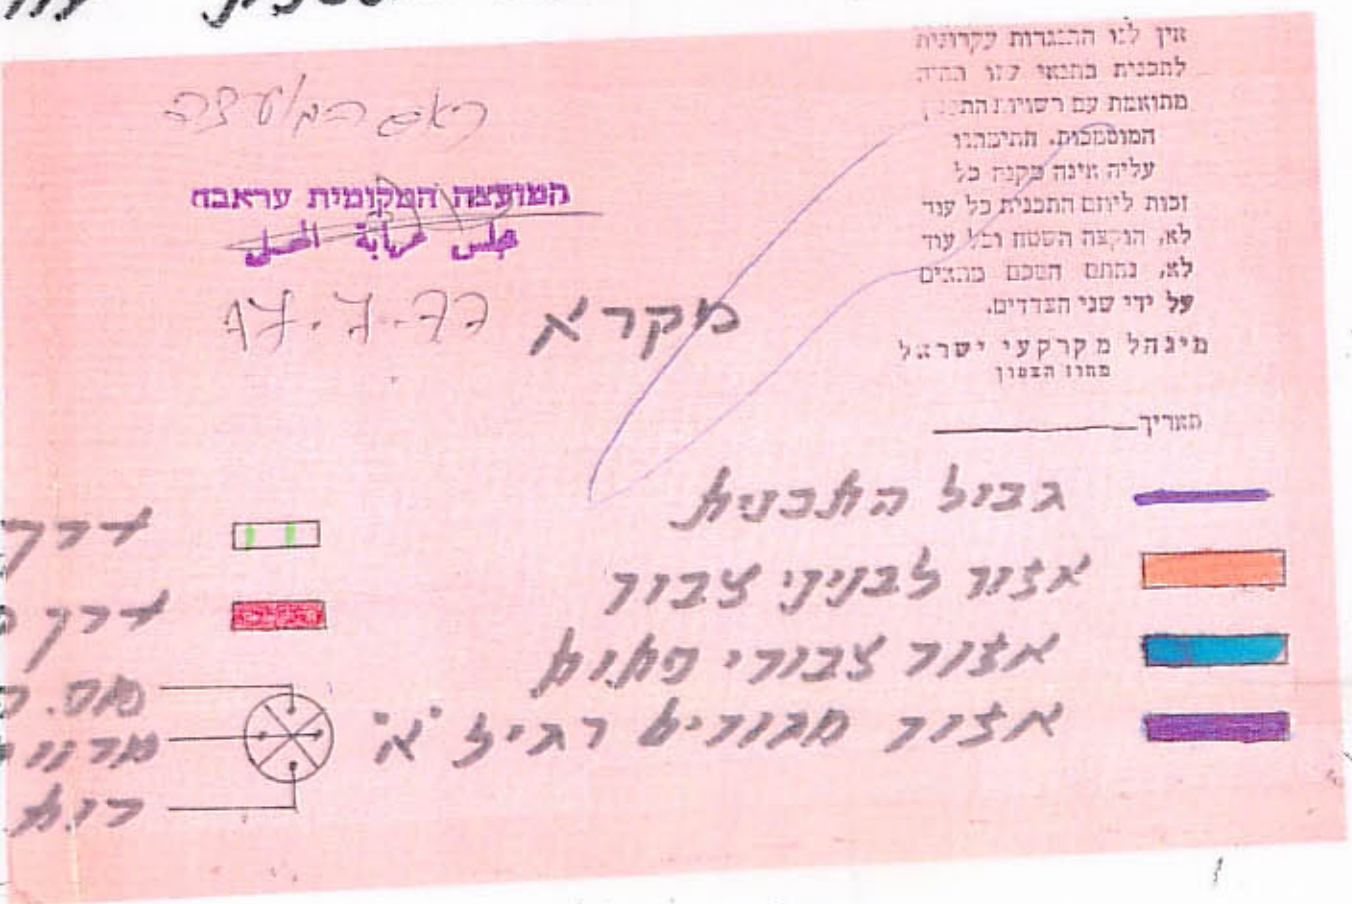 אין לנו התנגדות עקרונית
לתכנית בתנאי שזו תהיה
מתואמת עם רשויות התכנון
המוסמכות. חתימתנו
עליה אינה מקנה כל
זכות ליוזם התכנית כל עוד
לא הוקצה השטח וכל עוד
לא נחתם הסכם מתאים
על ידי שני הצדדים.
מינהל מקרקעי ישראל
מחוז הצפון
תאריך
ראש המועצה
המועצה המקומית עראבה
مجلس عرابة المحلي
מקרא
גבול התכנית
אזור לבניני צבור
אזור צבורי פתוח
אזור מגורים רגיל "א"
דרך
דרך
מס.